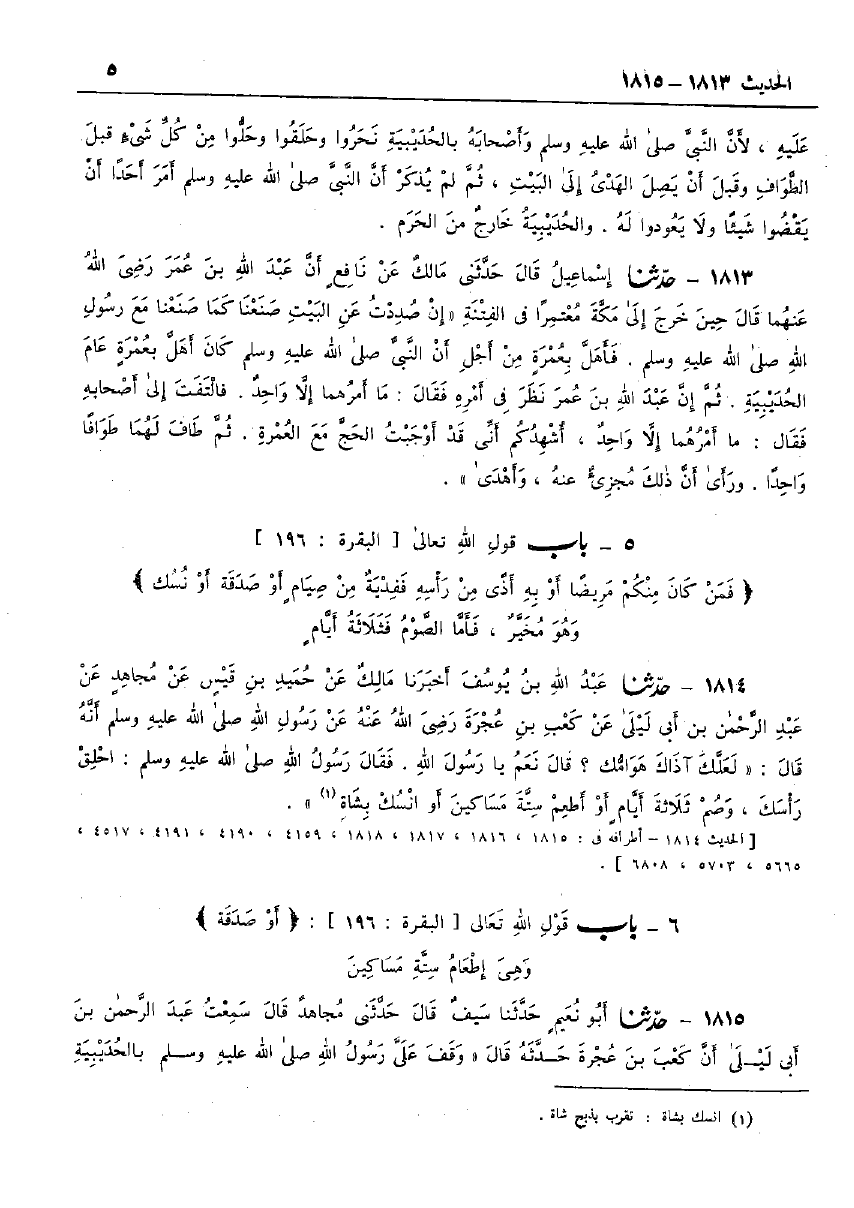 الحديث ١٨١٣ – ١٨١٥
٥
عَلَيهِ ، لأَنَّ النَّبىَّ صلىٰ الله عليهِ وسلم وَأَصْحابَهُ بالحُدَيْبِيَةِ نَحَرُوا وحَلَقُوا وحَلُّوا مِنْ كُلِّ شَىْءٍ قبلَ
الطَّوَافِ وقَبلَ أَنْ يَصِلَ الهَدْىُ إِلَىٰ البَيْتِ ، ثُمَّ لمْ يُذكَرْ أَنَّ النَّبىَّ صلىٰ الله عليهِ وسلم أَمَرَ أَحَدًا أَنْ
يَقْضُوا شَيئًا ولَا يَعُودوا لَهُ . والحُدَيْبِيَةُ خَارِجٌ منَ الحَرَمِ .
١٨١٣ – حدّثنا إِسْماعِيلُ قَالَ حَدَّثَنى مَالكٌ عَنْ نَافِعٍ أَنَّ عَبْدَ اللهِ بنَ عُمَرَ رَضِىَ اللهُ
عَنهُما قَالَ حِينَ خَرجَ إِلَىٰ مَكَّةَ مُعْتمِرًا فى الفِتْنَةِ « إِنْ صُدِدْتُ عَنِ البَيْتِ صَنَعْنَا كَمَا صَنَعْنا مَعَ رسُولِ
اللهِ صلىٰ الله عليهِ وسلم . فَأَهَلَّ بِعُمْرَةٍ مِنْ أَجْلِ أَنَّ النبىَّ صلىٰ الله عليهِ وسلم كَانَ أَهَلَّ بعُمْرَةٍ عَامَ
الحُدَيْبِيَةِ . ثُمَّ إِنَّ عَبْدَ اللهِ بنَ عُمرَ نَظَرَ فى أَمْرِهِ فَقَالَ : مَا أَمرُهما إِلَّا وَاحِدٌ . فالْتَفَتَ إِلىٰ أَصْحابهِ
فَقَال : ما أَمْرُهُما إِلَّا وَاحِدٌ ، أُشْهِدُكُم أَنِّى قَدْ أَوْجَبْتُ الحَجَّ مَعَ العُمْرةِ . ثُمَّ طَافَ لَهُما طَوَافًا
وَاحِدًا . ورَأَىٰ أَنَّ ذٰلكَ مُجزِئٌ عنهُ ، وَأَهْدَىٰ » .
٥ – باب قولِ اللهِ تعالىٰ [ البقرة : ١٩٦ ]
﴿ فَمَنْ كَانَ مِنْكُمْ مَرِيضًا أَوْ بِهِ أَذًى مِنْ رَأْسِهِ فَفِدْيَةٌ مِنْ صِيَامٍ أَوْ صَدَقَة أَوْ نُسُك ﴾
وَهُوَ مُخَيَّرٌ ، فَأَمَّا الصَّوْمُ فَثَلَاثَةُ أَيَّامٍ
١٨١٤ – حدّثنا عَبْدُ اللهِ بنُ يُوسُفَ أَخبَرَنا مَالِكٌ عَنْ حُمَيدِ بنِ قَيْسٍ عَنْ مُجاهدٍ عَنْ
عَبْدِ الرَّحْمٰنِ بن أَبى لَيْلَىٰ عَنْ كَعْبِ بنِ عُجْرَةَ رَضِىَ اللهُ عَنْهُ عَنْ رَسُولِ اللهِ صلىٰ الله عليهِ وسلم أَنَّهُ
قَالَ : « لَعَلَّكَ آذَاكَ هَوَامُّك ؟ قالَ نَعَمْ يا رَسُولَ اللهِ . فَقَالَ رَسُولُ اللهِ صلىٰ الله عليهِ وسلم : احْلِقْ
رَأْسَكَ ، وَصُمْ ثَلَاثةَ أَيَّامٍ أَوْ أَطعِمْ سِتَّةَ مَسَاكينَ أَو انْسُكْ بِشَاةٍ (١) » .
[ الحديث ١٨١٤ – أطرافه فى : ١٨١٥ ، ١٨١٦ ، ١٨١٧ ، ١٨١٨ ، ٤١٥٩ ، ٤١٩٠ ، ٤١٩١ ، ٤٥١٧ ،
٥٦٦٥ ، ٥٧٠٣ ، ٦٨٠٨ ] .
٦ – باب قَوْلِ اللهِ تَعَالى [ البقرة : ١٩٦ ] : ﴿ أَوْ صَدَقَة ﴾
وَهِىَ إِطْعَامُ سِتَّةِ مَسَاكِينَ
١٨١٥ – حدّثنا أَبُو نُعَيمٍ حَدَّثَنا سَيفٌ قَالَ حَدَّثَنى مُجاهدٌ قَالَ سَمِعْتُ عَبدَ الرَّحمٰن بنَ
أَبى لَيْلَىٰ أَنَّ كَعْبَ بنَ عُجْرةَ حَدَّثَهُ قَالَ « وَقَفَ عَلَىَّ رَسُولُ اللهِ صلىٰ الله عليهِ وسلم بالحُدَيْبِيَةِ
(١) انسك بشاة : تقرب بذبح شاة .